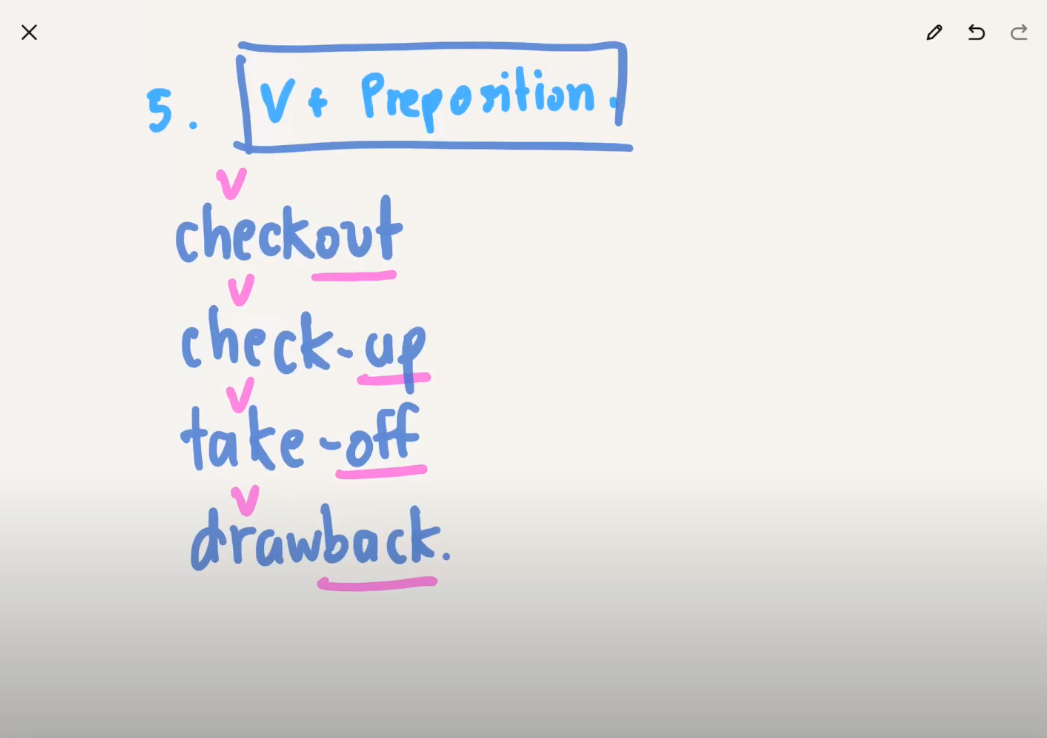 5. V + Preposition.
V
checkout
V
check-up
V
take-off
V
drawback.